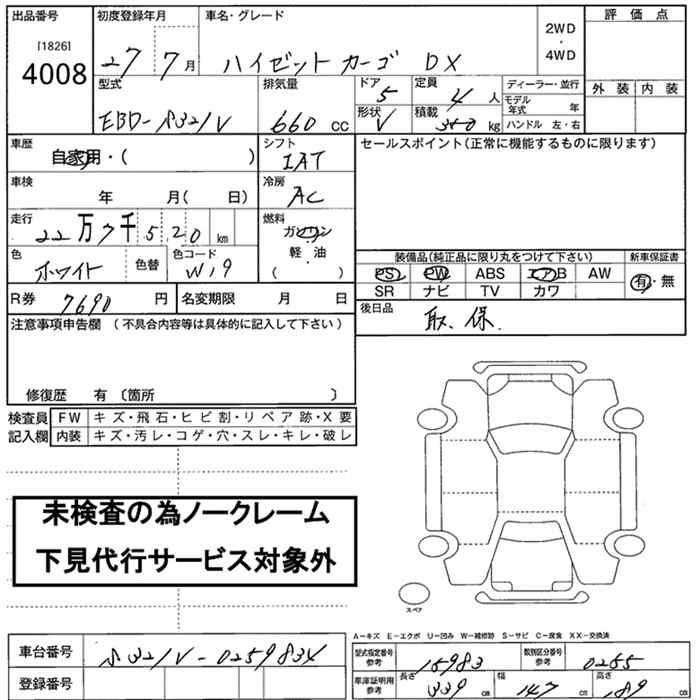 出品番号 初度登録年月 車名・グレード 2WD ・ 4WD 評価点
[1826]
4008
27年7月 ハイゼットカーゴ DX
外装 内装
型式 排気量 ドア 定員 ディーラー・並行
EBD-S321V 660 cc 5 4人 モデル年式 年
形状 積載 ハンドル 左・右
V 350 kg
車歴 自家用・( ) シフト IAT セールスポイント(正常に機能するものに限ります)
車検 年 月( 日) 冷房 AC
走行 22万7千520 km 燃料 ガソリン
軽・油
( )
色 ホワイト 色替 色コード W19
装備品(純正品に限り丸をつけて下さい) 新車保証書
PS PW ABS エアB AW 有・無
SR ナビ TV カワ
R券 7690円 名変期限 月 日 後日品 取、保.
注意事項申告欄 (不具合内容等は具体的に記入して下さい)
修復歴 有 〔箇所 〕
検査員 FW キズ・飛石・ヒビ割・リペア跡・X要
記入欄 内装 キズ・汚レ・コゲ・穴・スレ・キレ・破レ
未検査の為ノークレーム
下見代行サービス対象外
スペア
A-キズ E-エクボ U-凹み W-補修跡 S-サビ C-腐食 XX-交換済
車台番号 S321V-0259834 型式指定番号 参考 15983 類別区分番号 参考 0265
登録番号 車庫証明用 参考 長さ 339 cm 幅 147 cm 高さ 189 cm